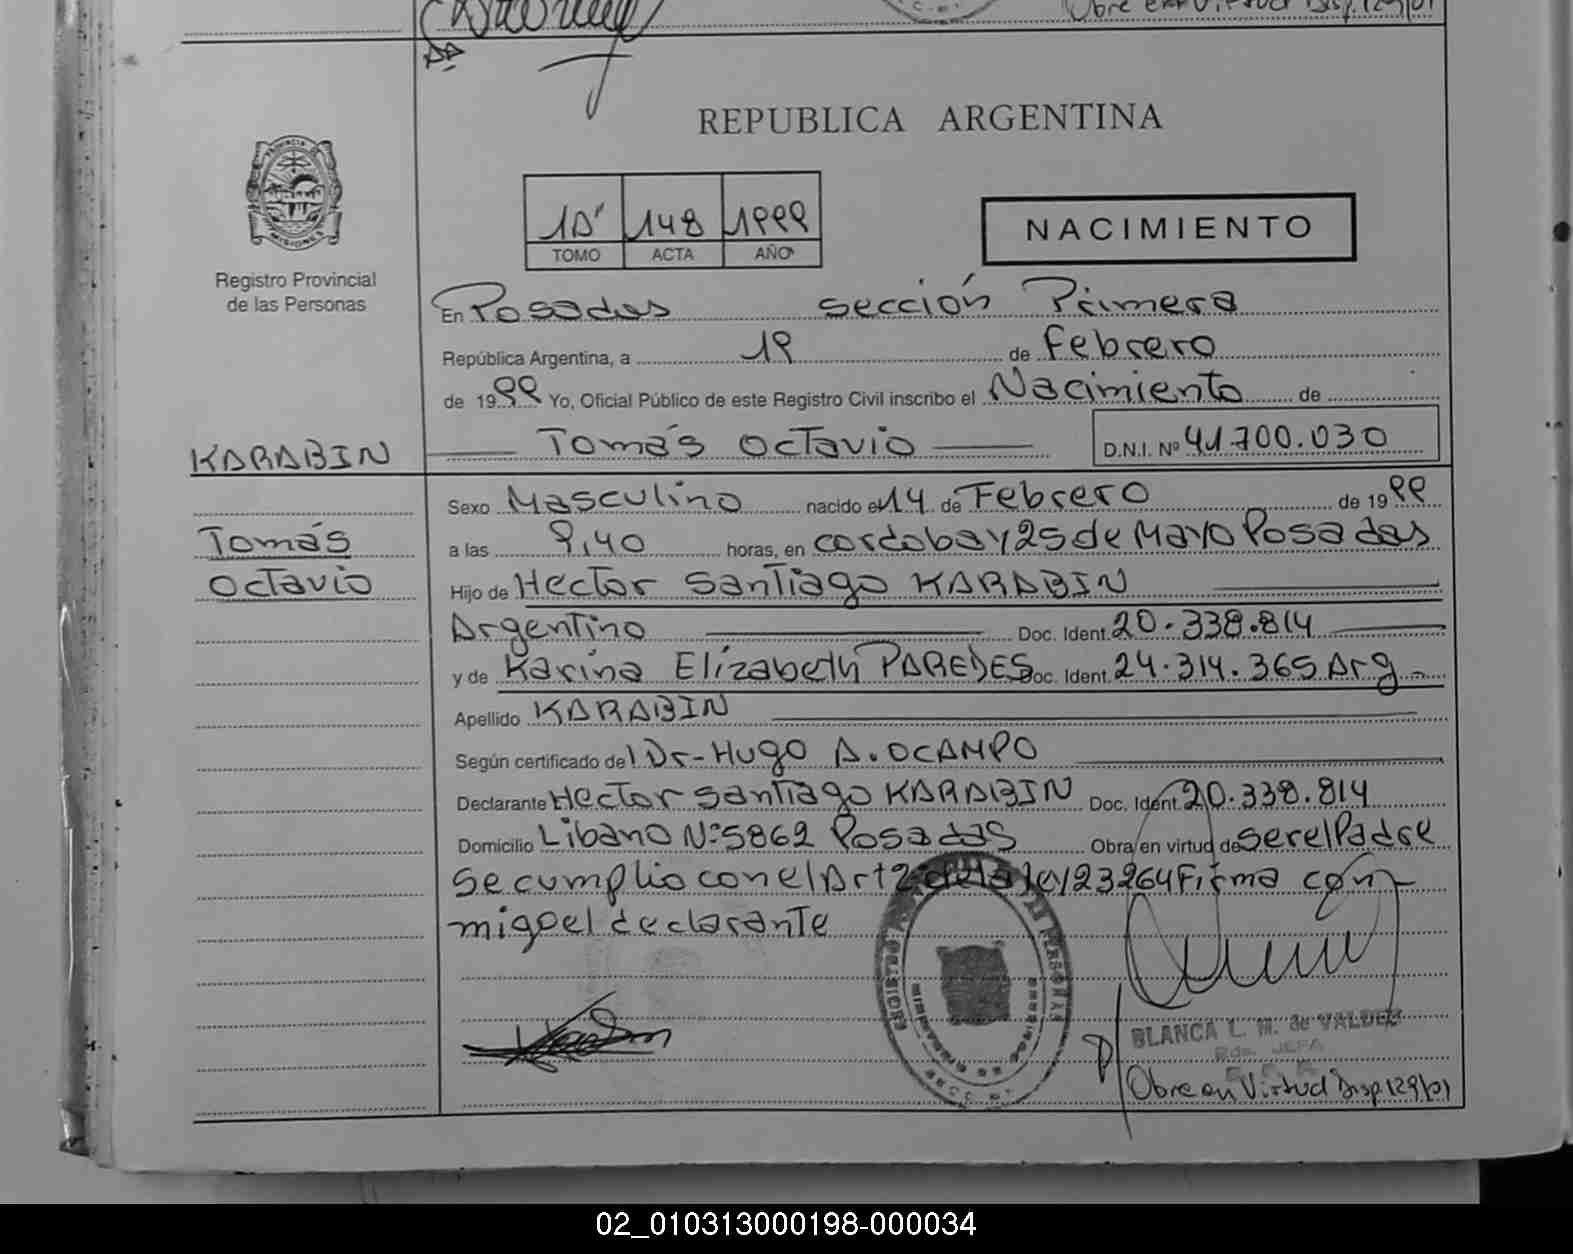 Obre en Virtud Disp.129/01
REPUBLICA ARGENTINA
PROVINCIA DE MISIONES
Registro Provincial
de las Personas
1A" 148 1999
TOMO ACTA AÑO
NACIMIENTO
En Posadas sección Primera
República Argentina, a 19 de Febrero
de 1999 Yo, Oficial Público de este Registro Civil inscribo el Nacimiento de
KARABIN
Tomás Octavio D.N.I. Nº 41.700.030
Tomás
Octavio
Sexo Masculino nacido el 14 de Febrero de 1999
a las 9,40 horas, en cordoba y 25 de Mayo Posadas
Hijo de Hector Santiago KARABIN
Argentino Doc. Ident. 20.338.814
y de Karina Elizabeth PAREDES Doc. Ident. 24.314.365 Arg.-
Apellido KARABIN
Según certificado del Dr-Hugo A. OCAMPO
Declarante Hector Santiago KARABIN Doc. Ident. 20.338.814
Domicilio Libano Nº 5862 Posadas Obra en virtud de ser el Padre
Se cumplio con el Art 2 de la ley 23264 Firma con-
migo el declarante
BLANCA L. M. de VALDEZ
JEFA
Obre en Virtud Disp 129/01
02_010313000198-000034